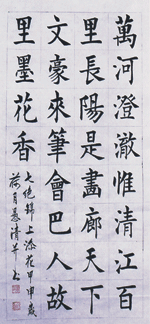 萬河澄澈惟清江百
里長陽是畫廊天下
文豪來筆會巴人故
里墨花香
七絕錦上添花甲申歲
荷月慕清羊書